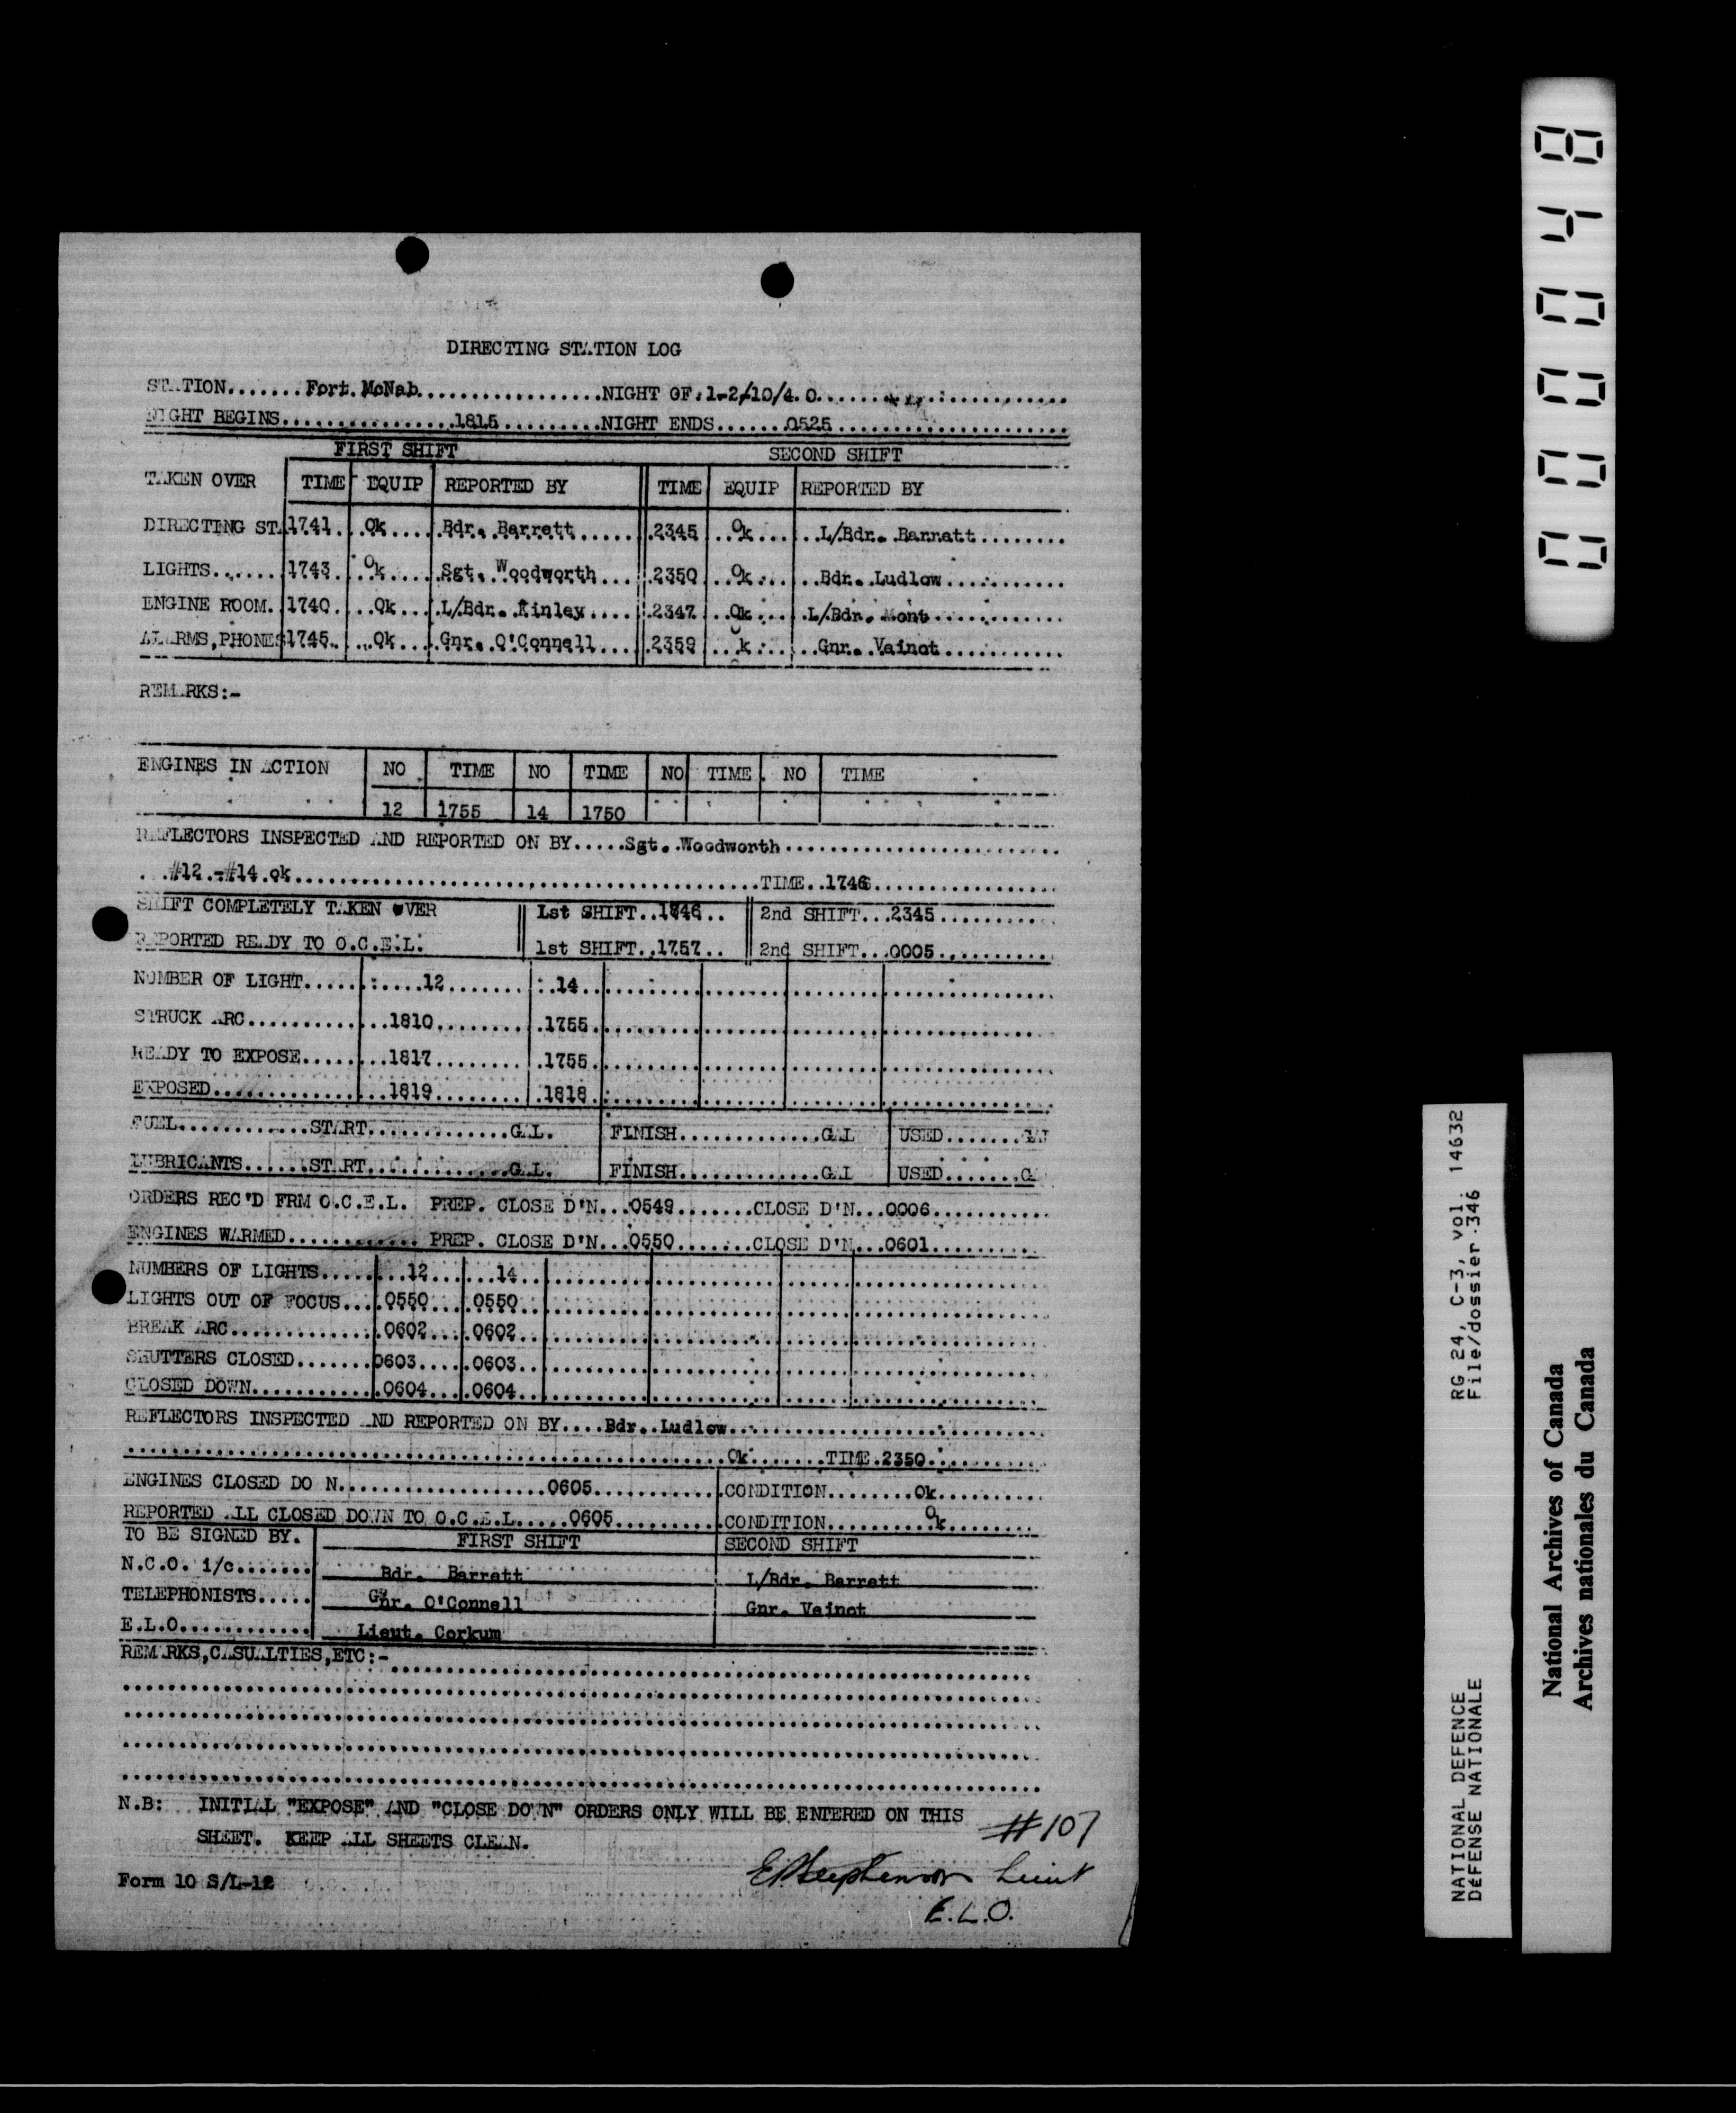 DIRECTING STATION LOG
STATION.......Fort McNab..................NIGHT OF.1-2/10/4.0.
NIGHT BEGINS.................1815..........NIGHT ENDS.......0525
FIRST SHIFT SECOND SHIFT
TAKEN OVER TIME EQUIP REPORTED BY TIME EQUIP REPORTED BY
DIRECTING STA. 1741. Ok Bdr. Barrett 2345 Ok L/Bdr. Barratt
LIGHTS....... 1743 Ok Sgt. Woodworth 2350 Ok Bdr. Ludlow
ENGINE ROOM. 1740. Ok L/Bdr. Kinley 2347 Ok L/Bdr. Mont
ALARMS,PHONES 1745. Ok Gnr. O'Connell 2359 Ok Gnr. Veinot
REMARKS:-
ENGINES IN ACTION NO TIME NO TIME NO TIME NO TIME
12 1755 14 1750
REFLECTORS INSPECTED AND REPORTED ON BY.....Sgt. Woodworth
#12.-#14.ok TIME..1746
SHIFT COMPLETELY TAKEN OVER 1st SHIFT..1746.. 2nd SHIFT...2345
REPORTED READY TO O.C.E.L. 1st SHIFT..1757.. 2nd SHIFT...0005
NUMBER OF LIGHT 12 14
STRUCK ARC 1810 1755
READY TO EXPOSE 1817 1755
EXPOSED 1819 1818
FUEL............START.............GAL. FINISH.............GAL USED.......GAL
LUBRICANTS......START.............GAL. FINISH.............GAL USED.......GA
ORDERS REC'D FRM O.C.E.L. PREP. CLOSE D'N...0549.......CLOSE D'N...0006
ENGINES WARMED............ PREP. CLOSE D'N...0550.......CLOSE D'N...0601
NUMBERS OF LIGHTS 12 14
LIGHTS OUT OF FOCUS 0550 0550
BREAK ARC 0602 0602
SHUTTERS CLOSED 0603 0603
CLOSED DOWN 0604 0604
REFLECTORS INSPECTED AND REPORTED ON BY....Bdr. Ludlow
Ok.......TIME.2350
ENGINES CLOSED DO N 0605 CONDITION........Ok
REPORTED ALL CLOSED DOWN TO O.C.E.L.....0605 CONDITION.........Ok
TO BE SIGNED BY. FIRST SHIFT SECOND SHIFT
N.C.O. i/c....... Bdr. Barrett L/Bdr. Barrett
TELEPHONISTS..... Gnr. O'Connell Gnr. Veinot
E.L.O............ Lieut. Corkum
REMARKS,CASUALTIES,ETC:-
N.B: INITIAL "EXPOSE" AND "CLOSE DOWN" ORDERS ONLY WILL BE ENTERED ON THIS
SHEET. KEEP ALL SHEETS CLEAN.
#107
Form 10 S/L-12
Lieut
E.L.O.
000048
RG 24, C-3, vol. 14632
File/dossier 346
NATIONAL DEFENCE
DÉFENSE NATIONALE
National Archives of Canada
Archives nationales du Canada